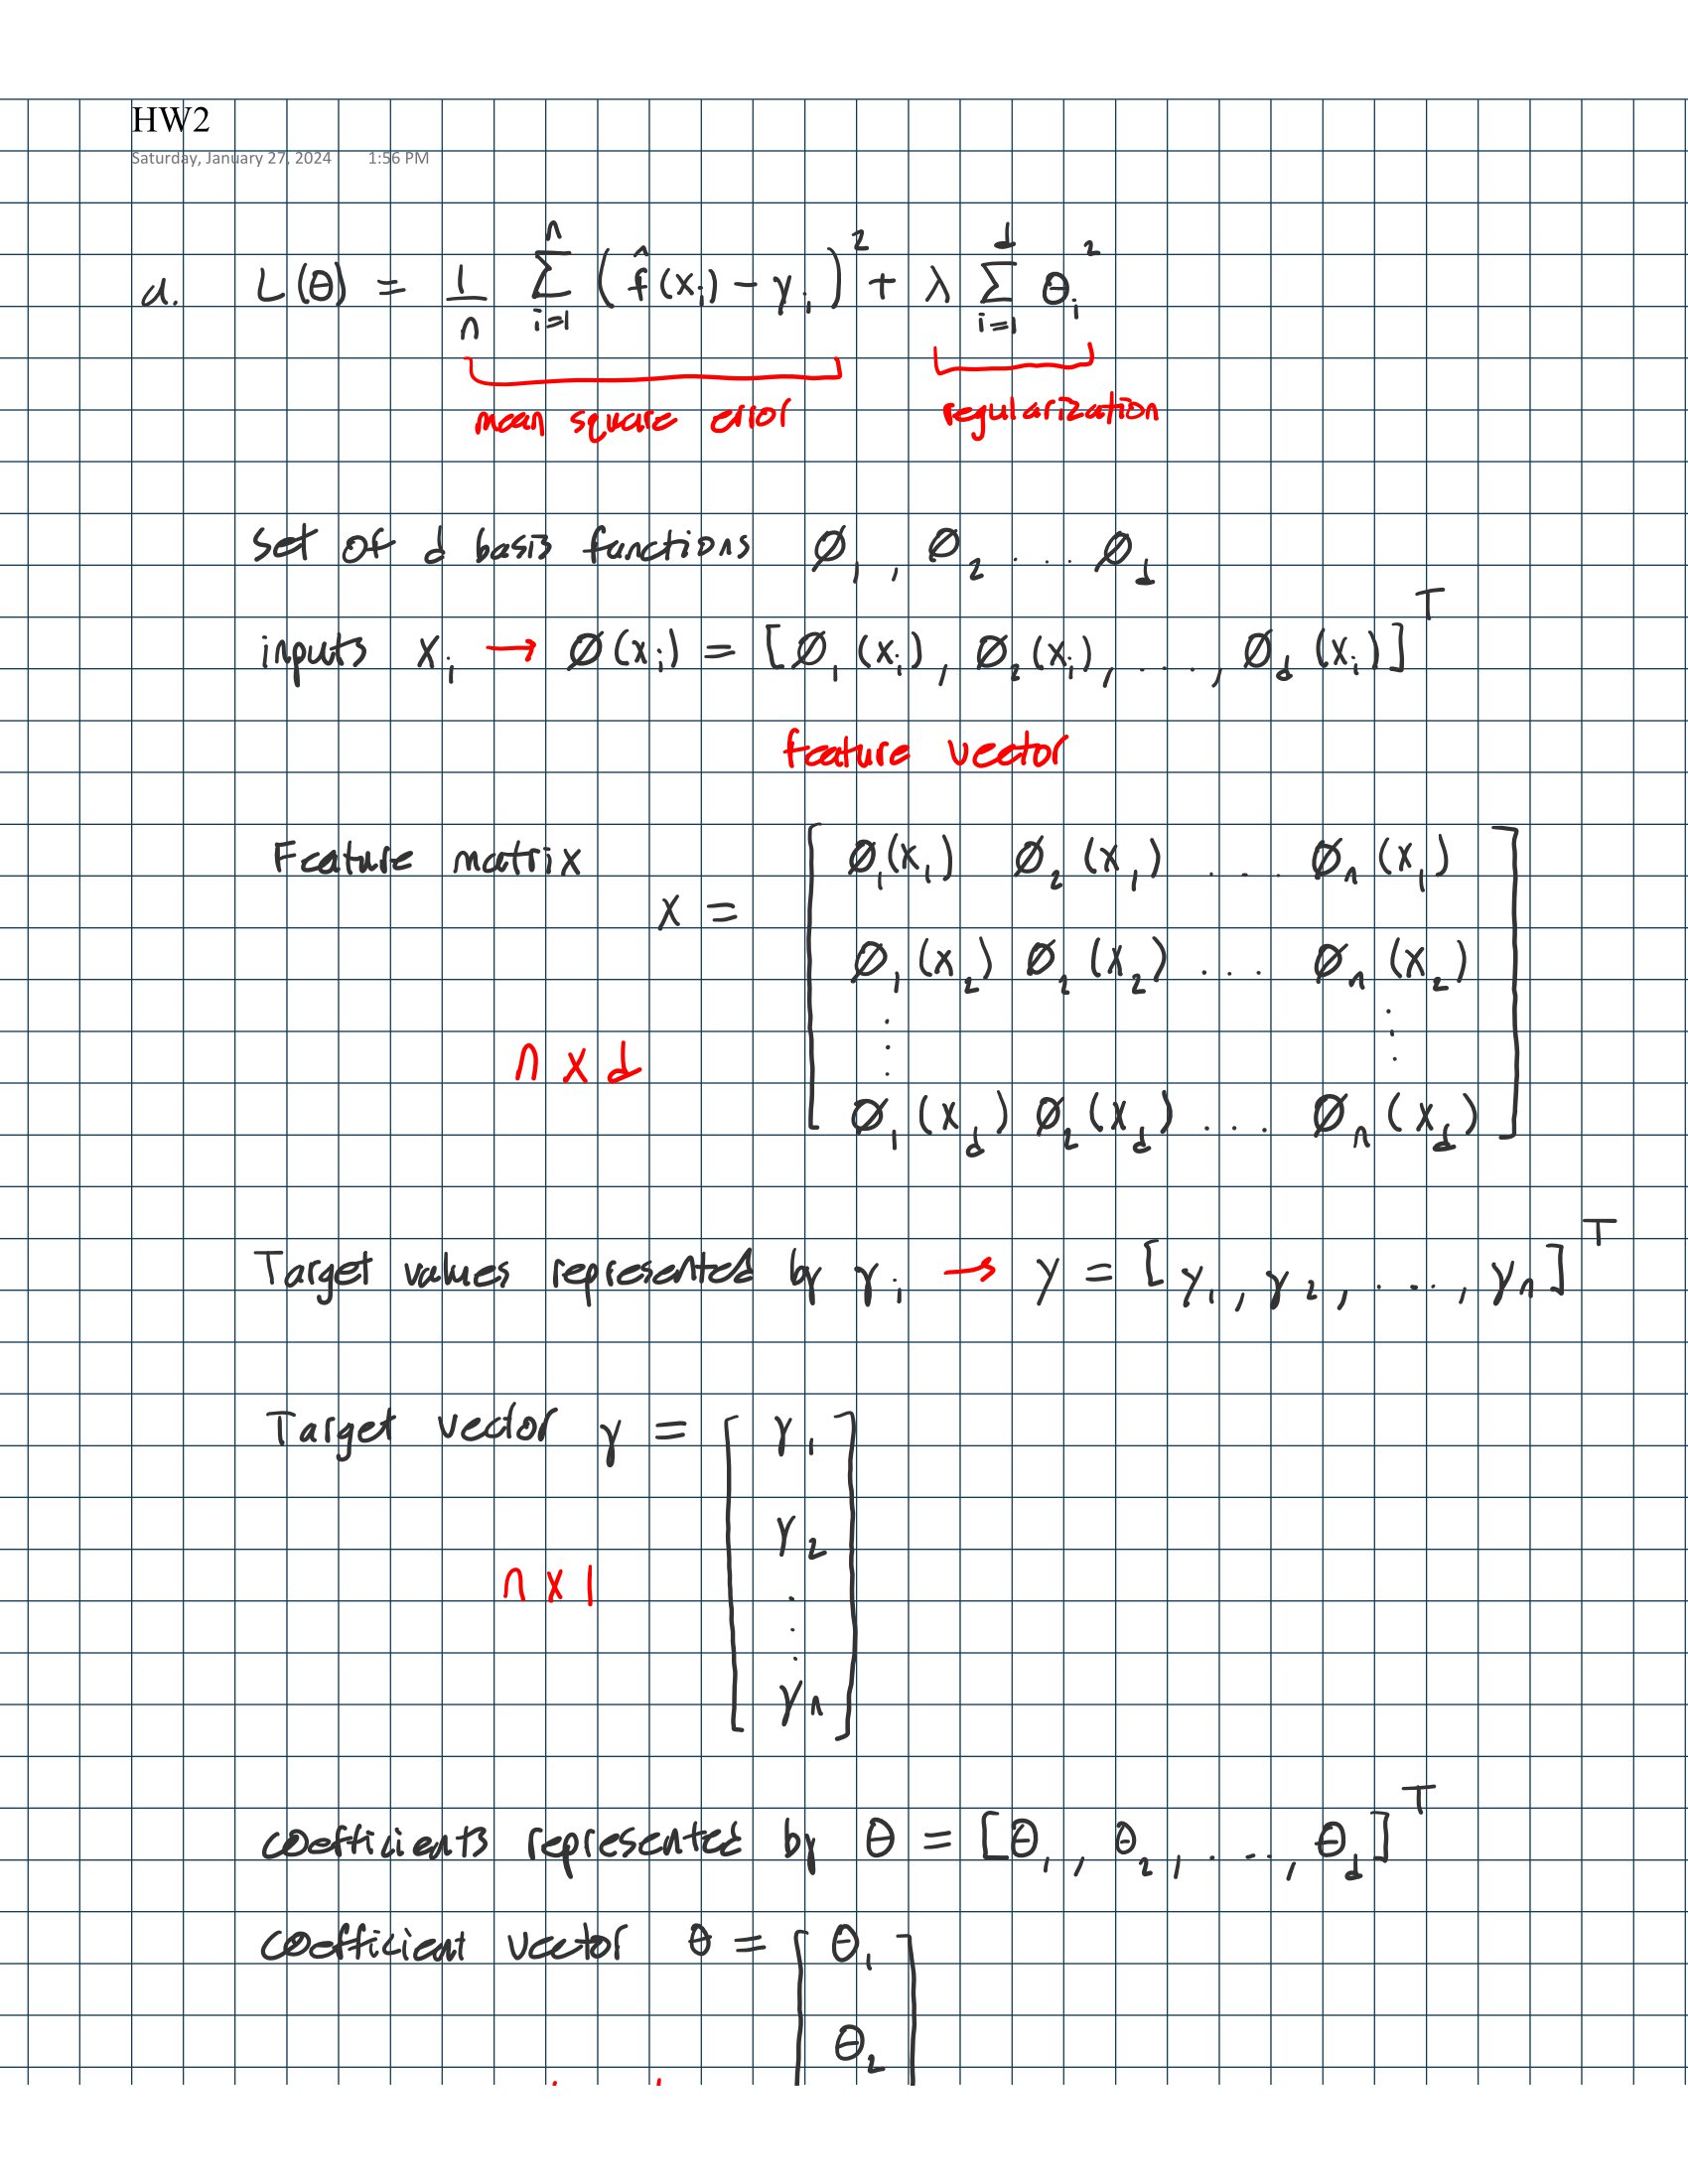 HW2
Saturday, January 27, 2024 1:56 PM
a. L(θ) = 1/n Σ_{i=1}^{n} (f̂(x_i) - y_i)^2 + λ Σ_{i=1}^{d} θ_i^2
mean square error regularization
set of d basis functions ∅_1, ∅_2 ... ∅_d
inputs x_i → ∅(x_i) = [∅_1(x_i), ∅_2(x_i), ..., ∅_d(x_i)]^T
feature vector
Feature matrix
x = [ ∅_1(x_1) ∅_2(x_1) .... ∅_n(x_1)
∅_1(x_2) ∅_2(x_2) .... ∅_n(x_2)
n x d ⋮ ⋮
∅_1(x_d) ∅_2(x_d) ... ∅_n(x_d) ]
Target values represented by y_i → y = [y_1, y_2, ..., y_n]^T
Target vector y = [ y_1
y_2
n x 1
⋮
y_n ]
coefficients represented by θ = [θ_1, θ_2, ..., θ_d]^T
coefficient vector θ = [ θ_1
θ_2